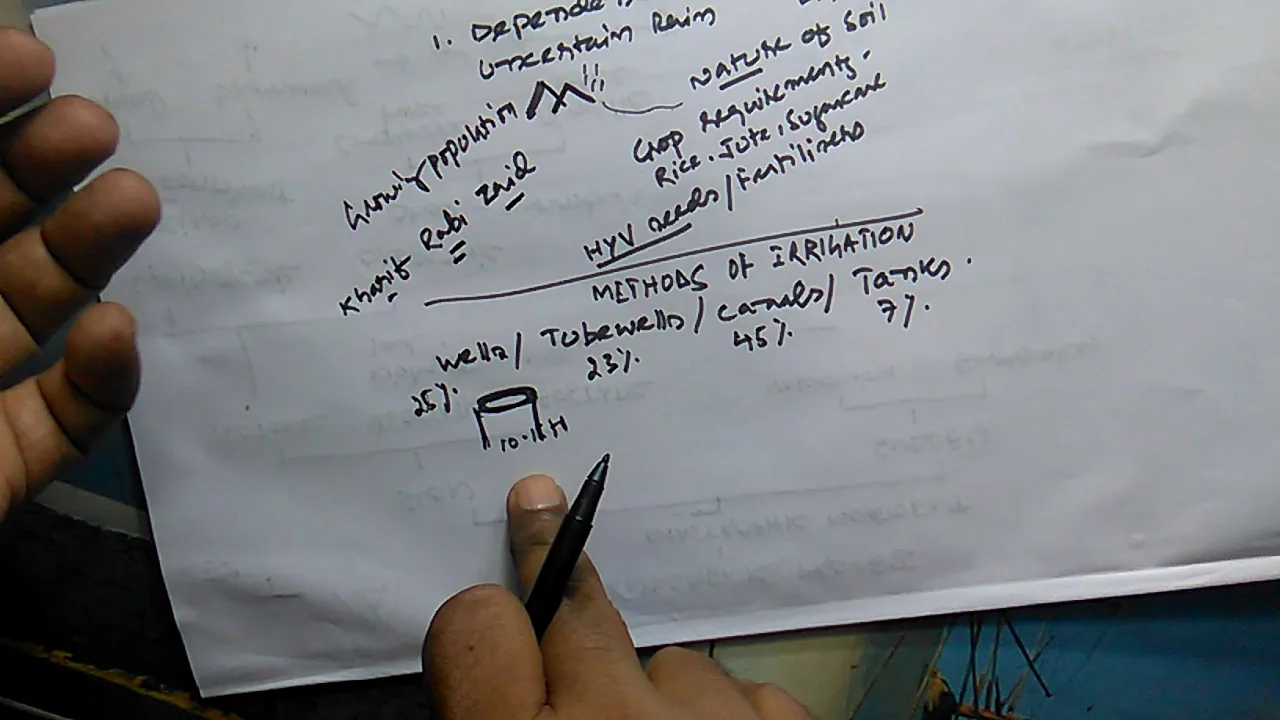 1. Depende
Uncertain Rain
Nature of Soil
Growing population
Crop Requirements.
Rice. Jute. Sugarcane
Kharif Rabi Zaid
HYV needs/Fertilizers
METHODS OF IRRIGATION
Wells/ Tubewells/ Canals/ Tanks.
25%. 23%. 45%. 7%.